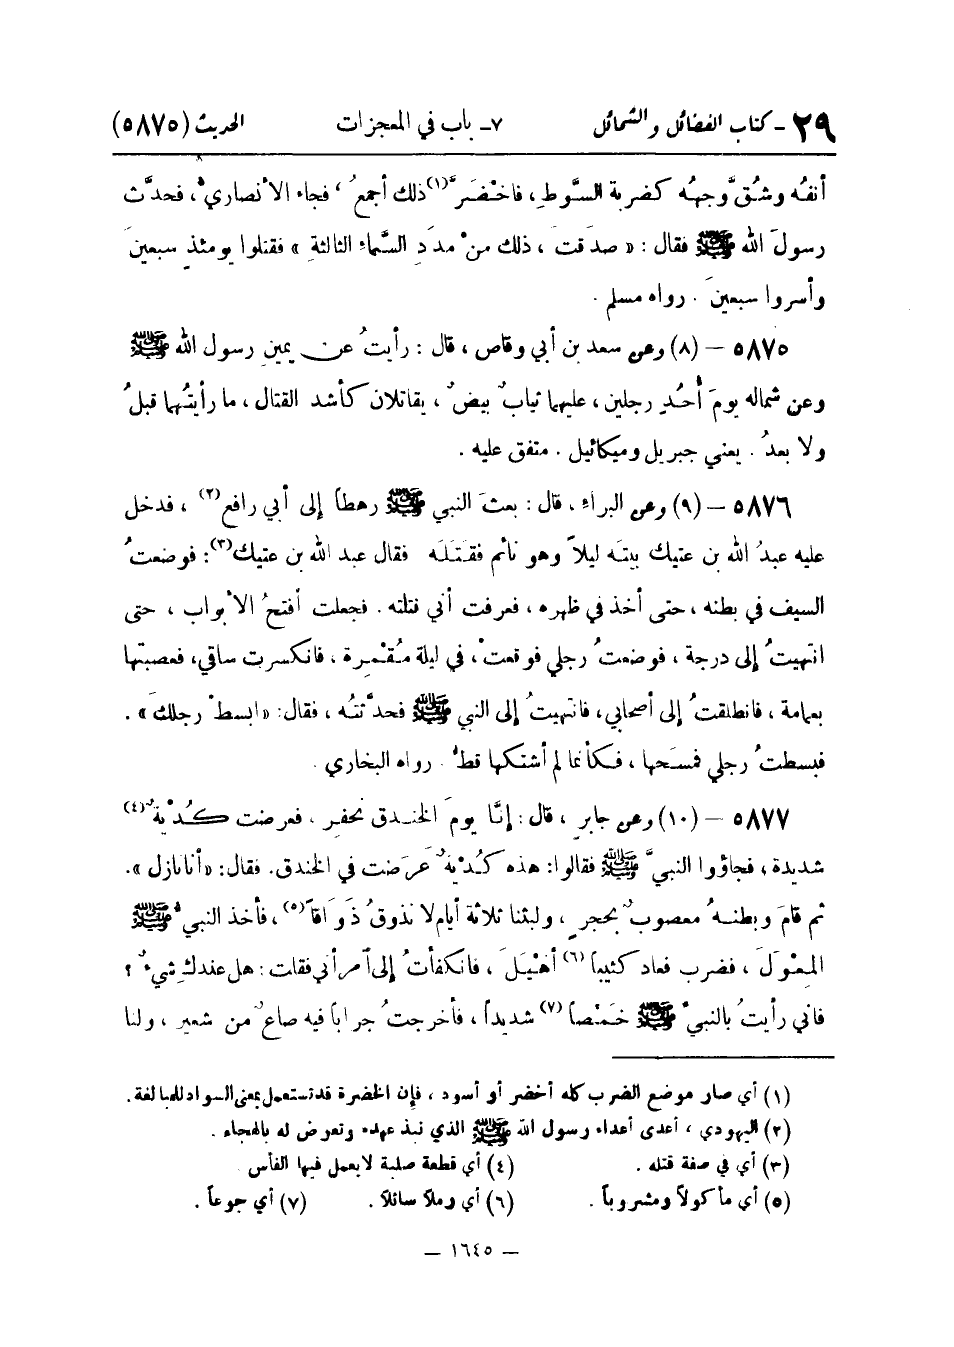 ٢٩ - كتاب الفضائل والشمائل ٧ - باب في المعجزات الحديث (٥٨٧٥)
أنفُه وشُقَّ وجهُه كضربة السَّوطِ، فاخضَرَّ(١) ذلك أجمعُ، فجاء الأنصاريُّ، فحدَّث
رسولَ الله ﷺ فقال: «صدَقت، ذلك منْ مدَدِ السَّماءِ الثالثةِ» فقتلوا يومئذٍ سبعينَ
وأسروا سبعينَ. رواه مسلم.
٥٨٧٥ – (٨) وعن سعد بن أبي وقاص، قال: رأيتُ عن يمينِ رسول الله ﷺ
وعن شماله يومَ أُحُدٍ رجلين، عليهما ثيابٌ بيضٌ، يقاتلان كأشد القتال، ما رأيتُهما قبلُ
ولا بعدُ. يعني جبريل وميكائيل. متفق عليه.
٥٨٧٦ – (٩) وعن البراءِ، قال: بعثَ النبي ﷺ رهطاً إلى أبي رافع(٢)، فدخل
عليه عبدُ الله بن عتيك بيتَه ليلاً وهو نائم فقتَلَه فقال عبد الله بن عتيك(٣): فوضعتُ
السيف في بطنه، حتى أخذ في ظهره، فعرفت أني قتلته. فجعلت أفتحُ الأبواب، حتى
انتهيتُ إلى درجة، فوضعتُ رجلي فوقعتْ، في ليلة مُقْمِرة، فانكسرت ساقي، فعصبتها
بعمامة، فانطلقتُ إلى أصحابي، فانتهيتُ إلى النبي ﷺ فحدَّثتُه، فقال: «ابسطْ رجلكَ».
فبسطتُ رجلي فمسَحها، فكأنما لم أشتكها قطُّ. رواه البخاري.
٥٨٧٧ – (١٠) وعن جابرٍ، قال: إنَّا يومَ الخندق نحفِر، فعرضت كُدْيةٌ(٤)
شديدة، فجاؤوا النبيَّ ﷺ فقالوا: هذه كُدْيةٌ عَرَضت في الخندق. فقال: «أنا نازل».
ثم قامَ وبطنُه معصوبٌ بحجرٍ، ولبثنا ثلاثة أيام لا نذوقُ ذَوَاقاً(٥)، فأخذ النبيُّ ﷺ
المِعْوَلَ، فضرب فعاد كثيباً(٦) أهْيَلَ، فانكفأتُ إلى امرأتي فقلت: هل عندكِ شيءٌ؟
فاني رأيتُ بالنبيِّ ﷺ خمَصْاً(٧) شديداً، فأخرجتُ جراباً فيه صاعٌ من شعير، ولنا
(١) أي صار موضع الضرب كله أخضر أو أسود، فإن الخضرة قد تستعمل بمعنى السواد للمبالغة.
(٢) اليهودي، أعدى أعداء رسول الله ﷺ الذي نبذ عهده وتعرض له بالهجاء.
(٣) أي في صفة قتله. (٤) أي قطعة صلبة لا يعمل فيها الفأس
(٥) أي مأكولاً ومشروباً. (٦) أي رملاً سائلاً. (٧) أي جوعاً.
— ١٦٤٥ —